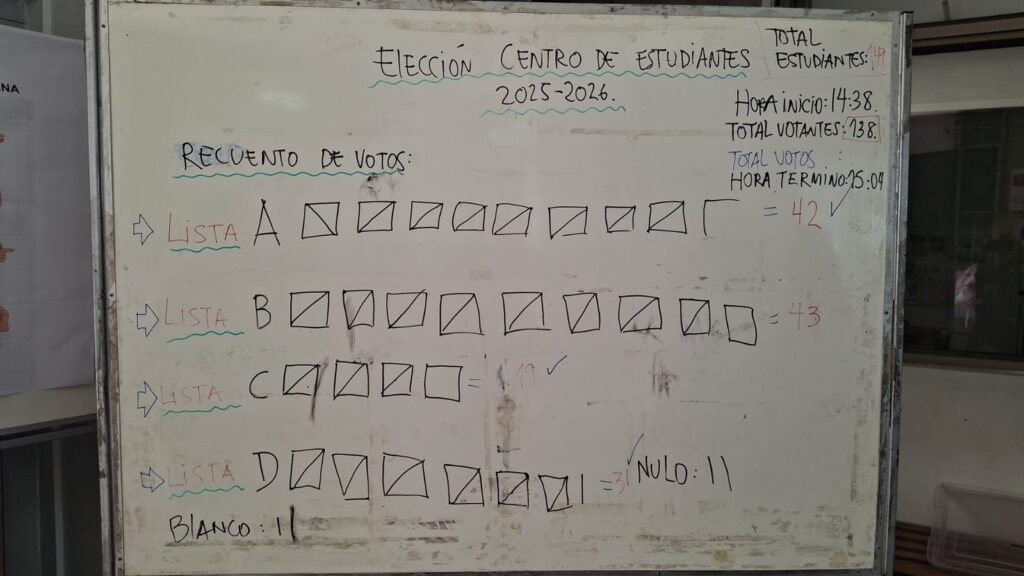 ELECCIÓN CENTRO DE ESTUDIANTES
2025-2026.
TOTAL
ESTUDIANTES:
HORA INICIO: 14:38.
TOTAL VOTANTES: 138.
TOTAL VOTOS :
HORA TERMINO: 15:04
RECUENTO DE VOTOS:
LISTA A = 42
LISTA B = 43
LISTA C = 19
LISTA D = 31 NULO: II
BLANCO: II
NA